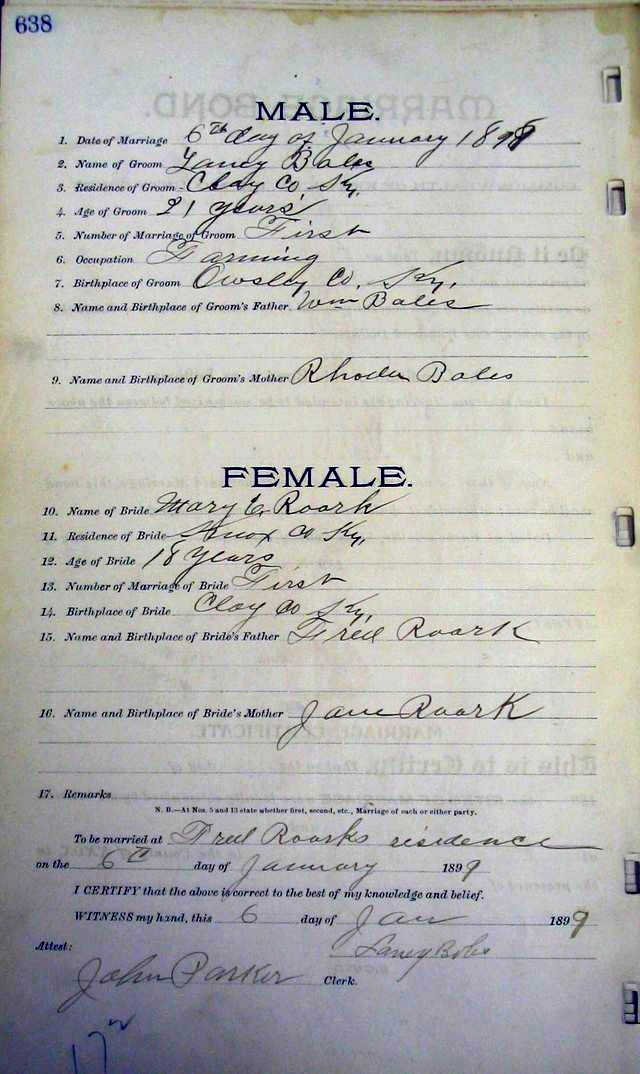 638
MALE.
1. Date of Marriage 6th day of January 1898
2. Name of Groom Laney Bales
3. Residence of Groom Clay Co Ky.
4. Age of Groom 21 years
5. Number of Marriage of Groom First
6. Occupation Farming
7. Birthplace of Groom Owsley Co, Ky.
8. Name and Birthplace of Groom's Father Wm Bales
9. Name and Birthplace of Groom's Mother Rhoda Bales
FEMALE.
10. Name of Bride Mary E. Roark
11. Residence of Bride Knox Co Ky,
12. Age of Bride 18 years
13. Number of Marriage of Bride First
14. Birthplace of Bride Clay Co Ky,
15. Name and Birthplace of Bride's Father Fred Roark
16. Name and Birthplace of Bride's Mother Jane Roark
17. Remarks
N. B.—At Nos. 5 and 13 state whether first, second, etc., Marriage of each or either party.
To be married at Fred Roarks residence
on the 6th day of January 1899
I CERTIFY that the above is correct to the best of my knowledge and belief.
WITNESS my hand, this 6 day of Jan 1899
Laney Bales
Attest:
John Parker Clerk.